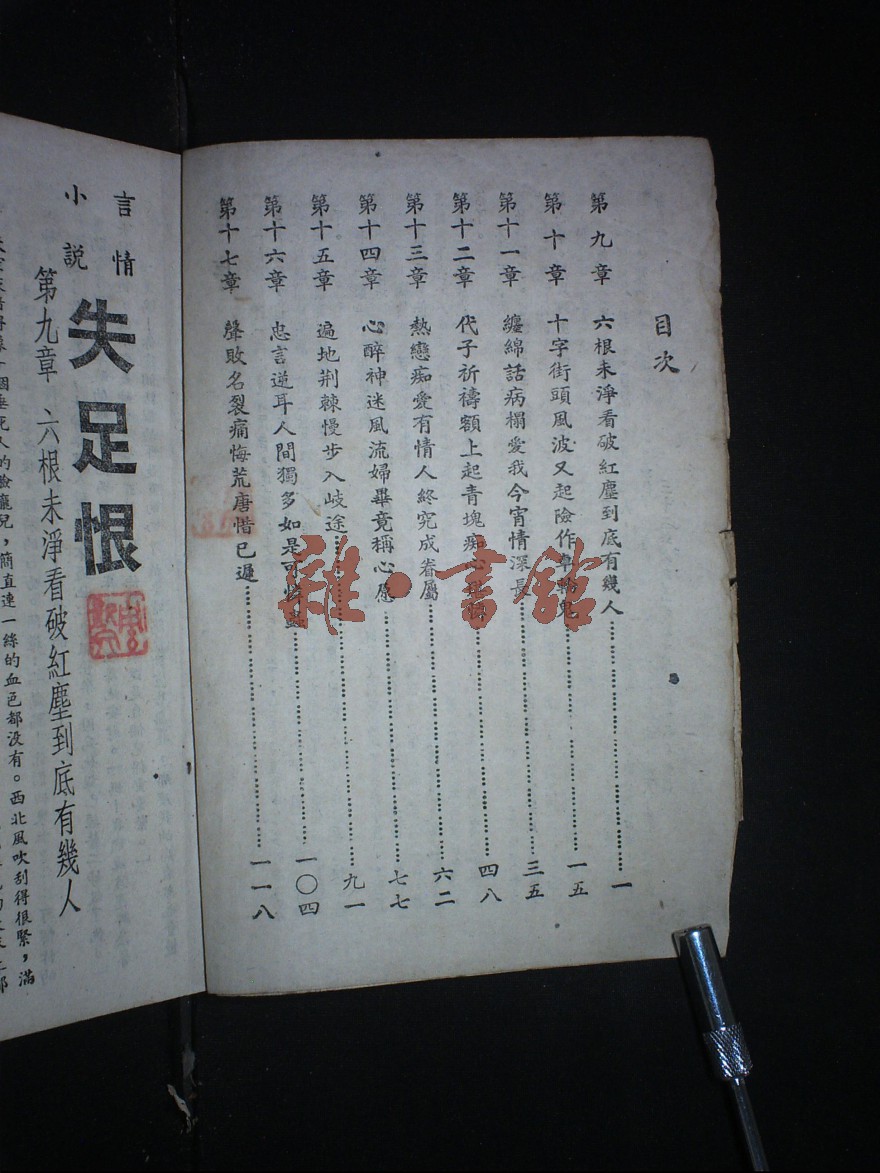 目次
第九章 六根未淨看破紅塵到底有幾人 一
第十章 十字街頭風波又起險作車輪鬼 一五
第十一章 纏綿話病榻愛我今宵情深長 三五
第十二章 代子祈禱額上起青塊痴心 四八
第十三章 熱戀痴愛有情人終究成眷屬 六二
第十四章 心醉神迷風流婦畢竟稱心愿 七七
第十五章 遍地荆棘慢步入岐途 九一
第十六章 忠言逆耳人間獨多如是可憐蟲 一〇四
第十七章 聲敗名裂痛悔荒唐惜已遲 一一八
言情
小説
失足恨
第九章 六根未淨看破紅塵到底有幾人
個垂死人的臉龐兒，簡直連一絲的血色都没有。西北風吹刮得很緊，滿
雜·書館